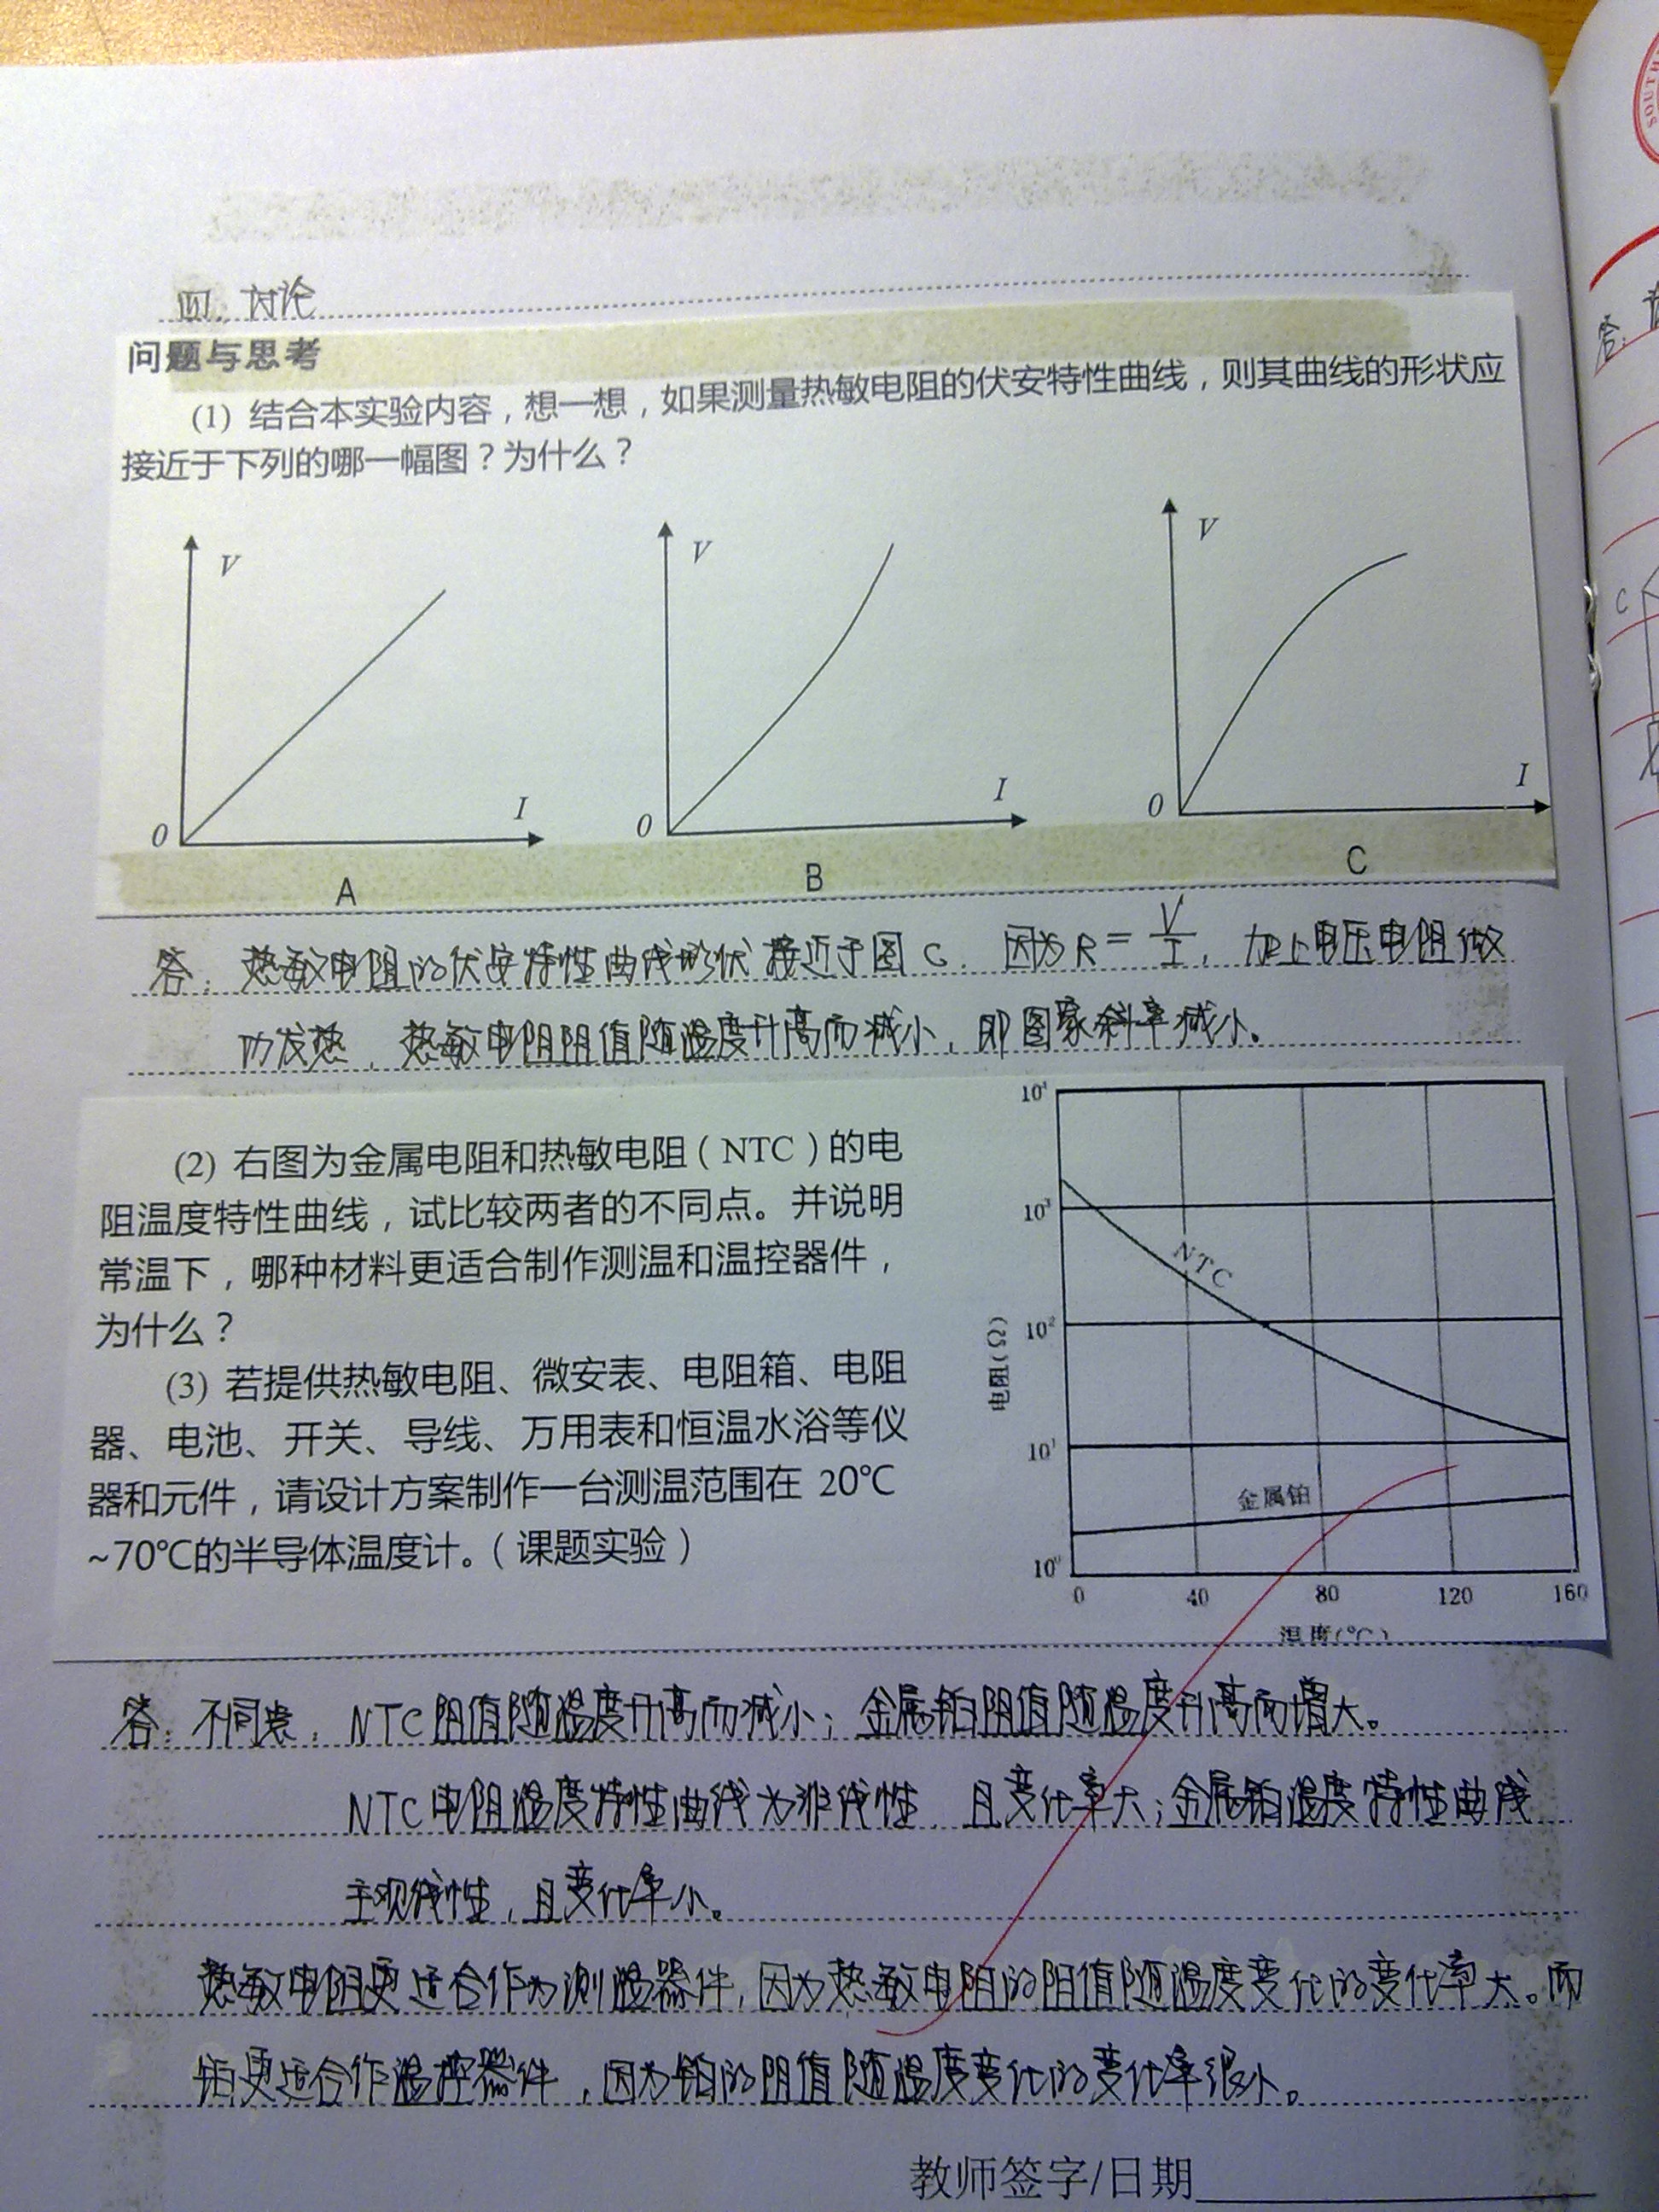 四、讨论
问题与思考
(1) 结合本实验内容，想一想，如果测量热敏电阻的伏安特性曲线，则其曲线的形状应
接近于下列的哪一幅图？为什么？
V
V
V
0
I
0
I
0
I
A
B
C
答：热敏电阻的伏安特性曲线形状接近于图C. 因为R=V/I，加上电压电阻做
功发热，热敏电阻阻值随温度升高而减小，即图象斜率减小。
(2) 右图为金属电阻和热敏电阻（NTC）的电
阻温度特性曲线，试比较两者的不同点。并说明
常温下，哪种材料更适合制作测温和温控器件，
为什么？
(3) 若提供热敏电阻、微安表、电阻箱、电阻
器、电池、开关、导线、万用表和恒温水浴等仪
器和元件，请设计方案制作一台测温范围在 20℃
~70℃的半导体温度计。（课题实验）
10⁴
10³
10²
10¹
10⁰
电阻(Ω)
NTC
金属铂
0
40
80
120
160
温度(℃)
答：不同点：NTC阻值随温度升高而减小；金属铂阻值随温度升高而增大。
NTC电阻温度特性曲线为非线性，且变化率大；金属铂温度特性曲线
呈现线性，且变化率小。
热敏电阻更适合作为测温器件，因为热敏电阻的阻值随温度变化的变化率大。而
铂更适合作温控器件，因为铂的阻值随温度变化的变化率很小。
教师签字/日期
答：
C